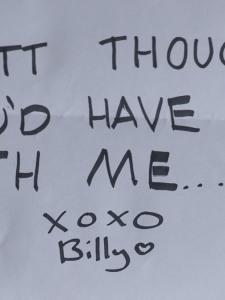 TT THOUG
U'D HAVE
TH ME....
XOXO
Billy♡